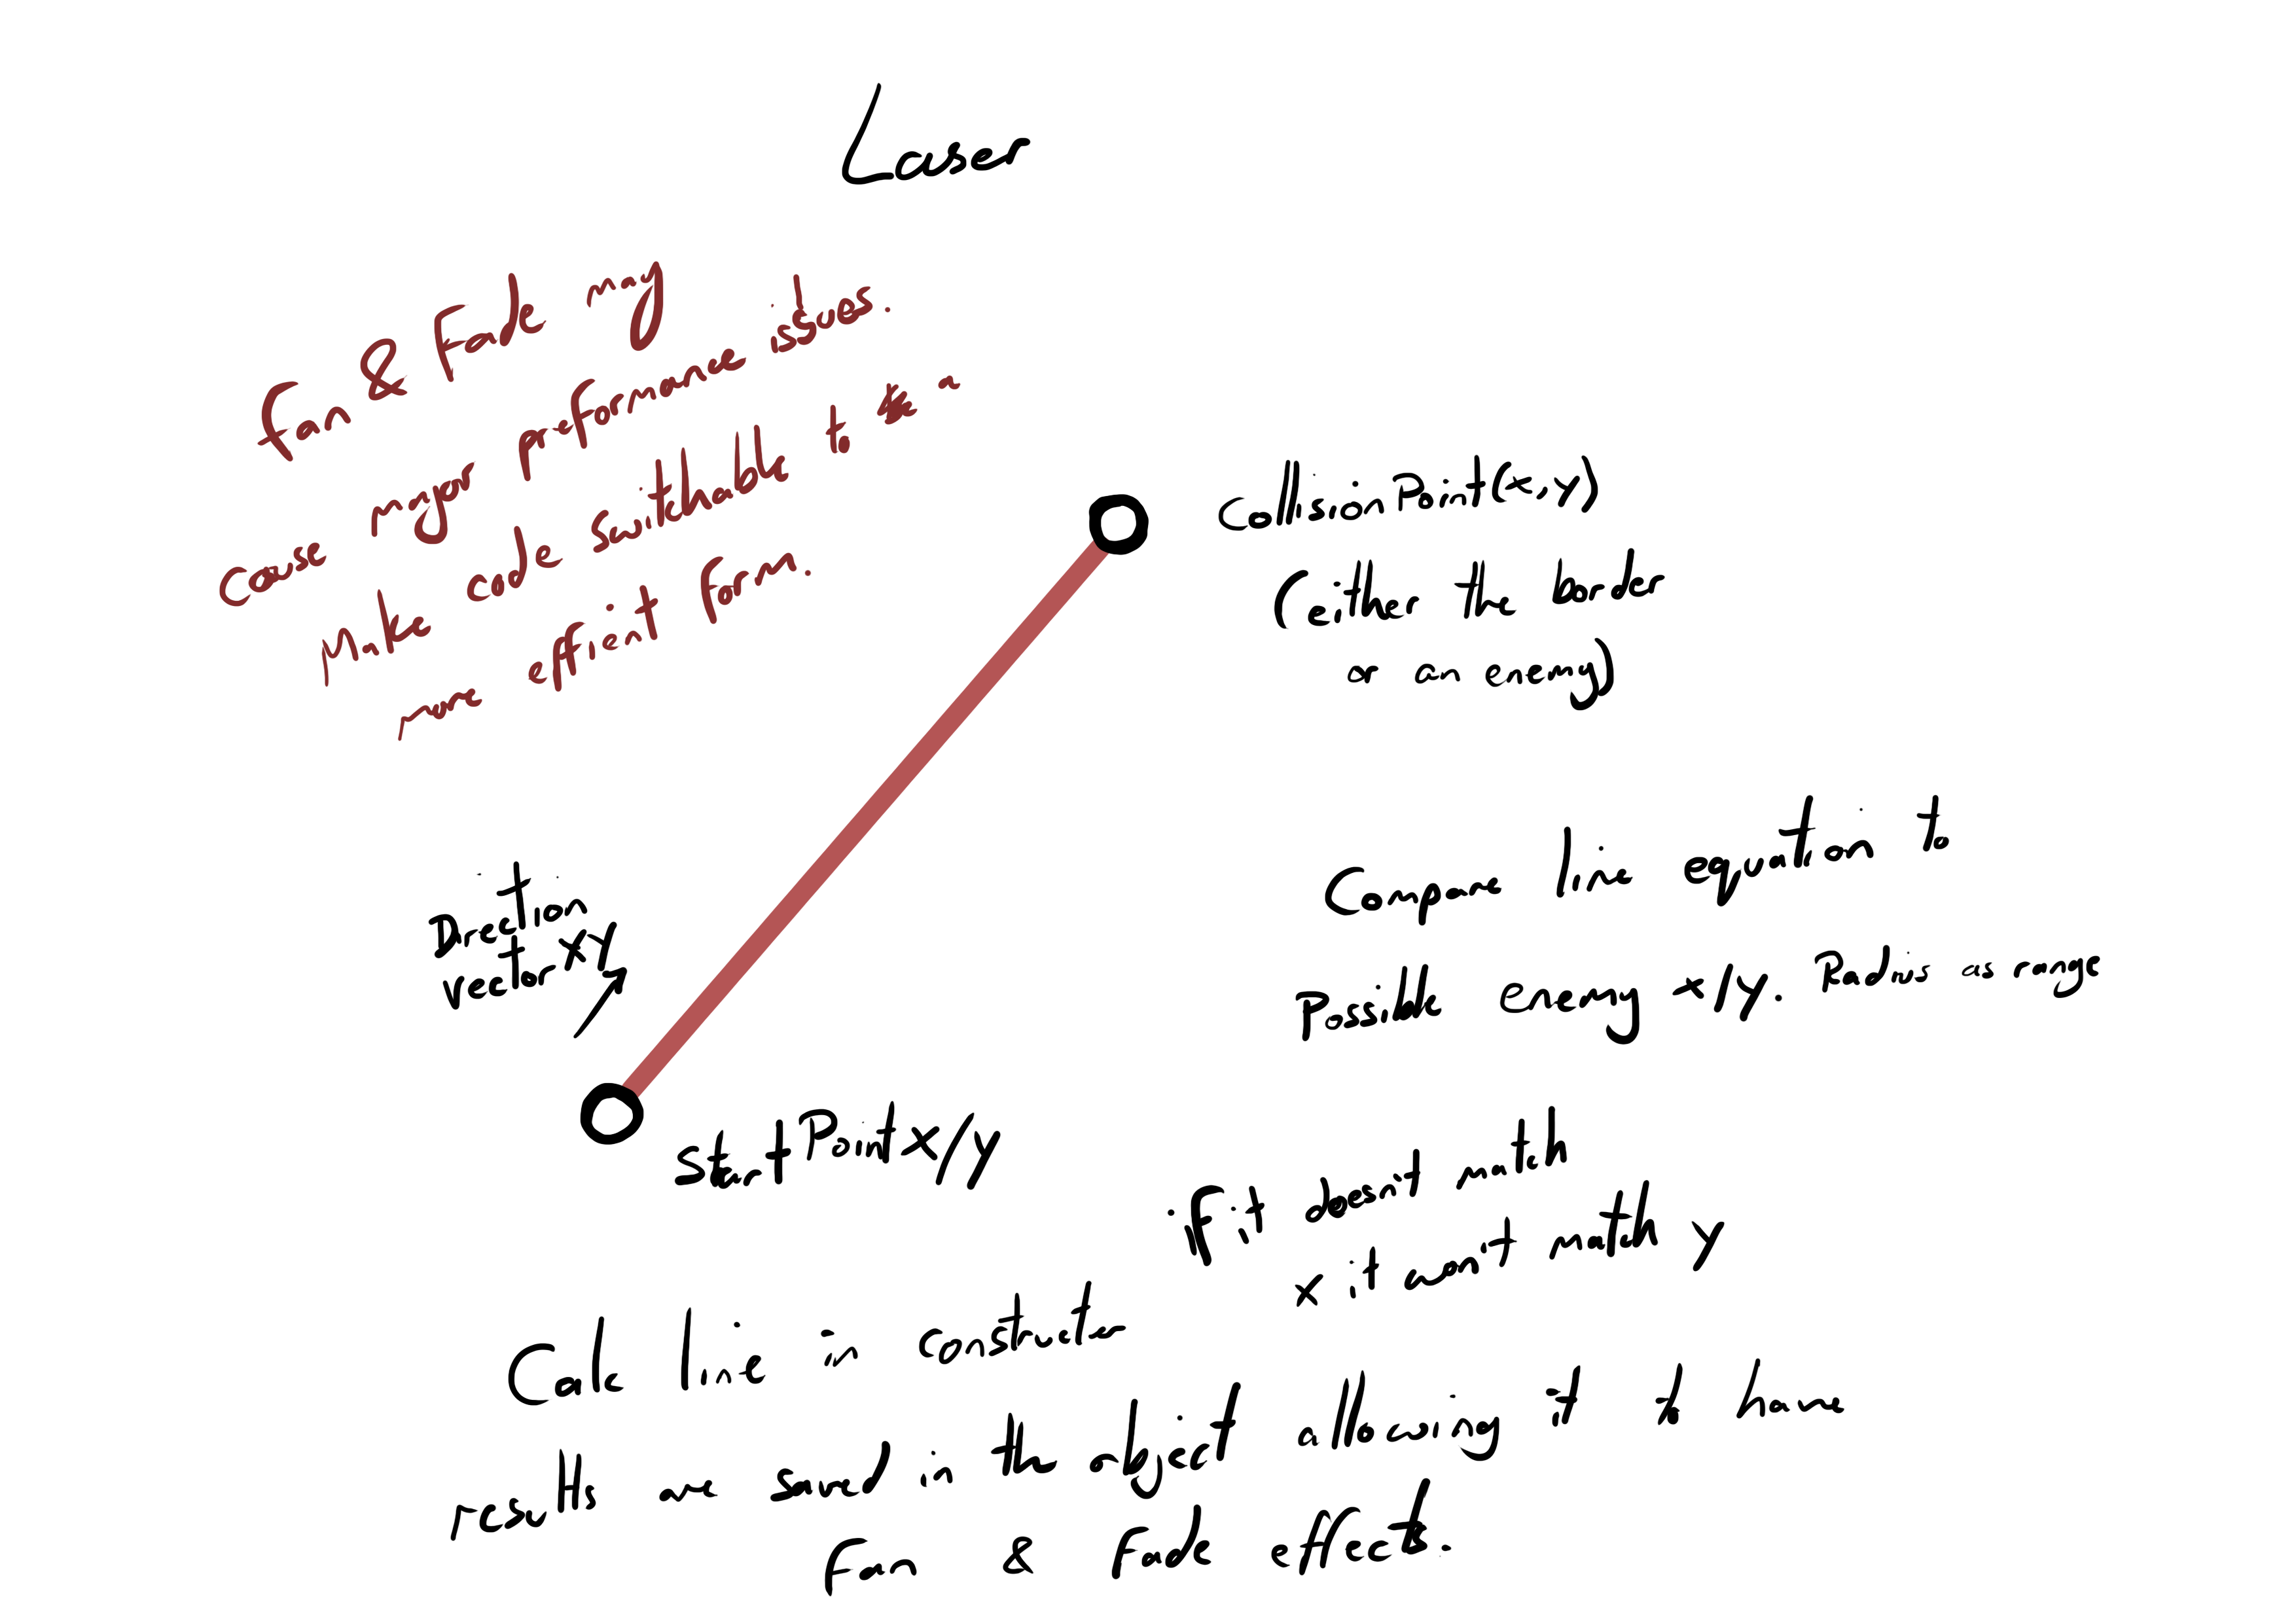 Laser
Fan & Fade may
cause major preformance issues.
Make code switchable to a
more effient form.
CollisionPoint(x,y)
(either the border
or an enemy)
Compare line equation to
Possible enemy x/y. Radius as range
Direction
vector XY
StartPoint x/y
if it doesn't match
x it won't match y
Calc line in constructer
results are saved in the object allowing it to have
Fan & Fade effects.